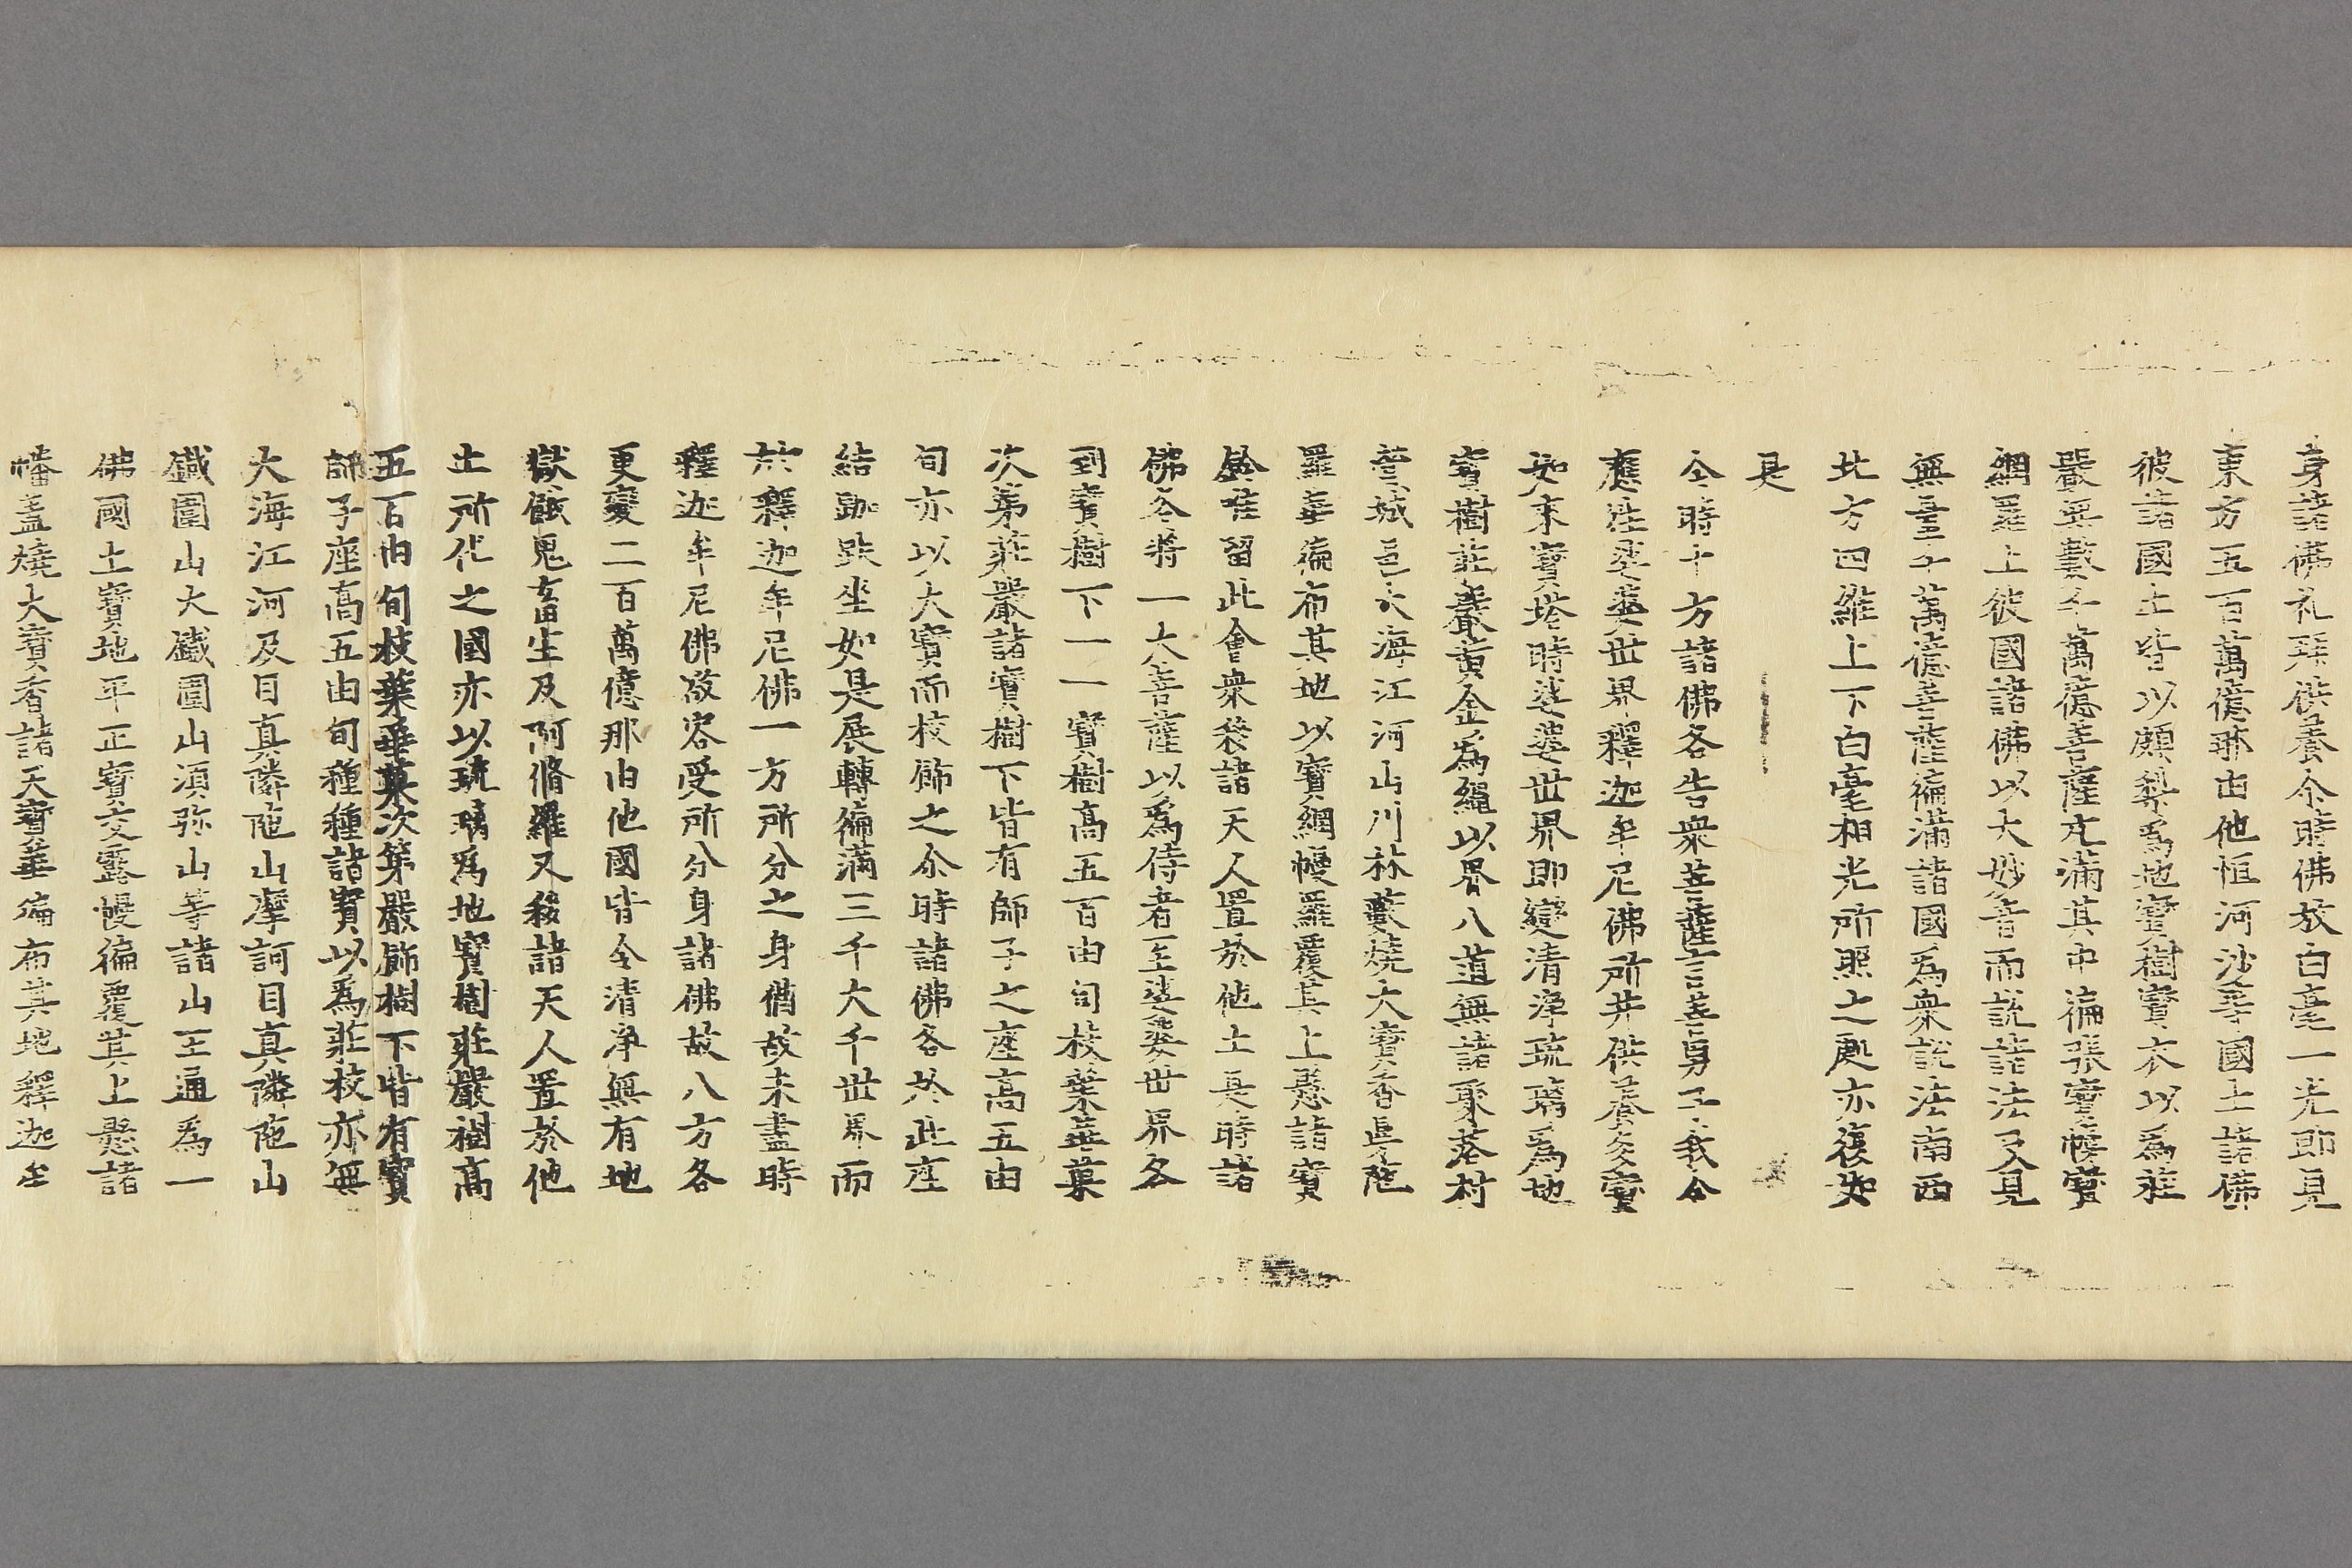 身諸佛礼拜供養尒時佛放白毫一光即見
東方五百萬億那由他恒河沙等國土諸佛
彼諸國土皆以頗梨爲地寶樹寶衣以爲莊
嚴無數千萬億菩薩充滿其中徧張寶幔寶
網羅上彼國諸佛以大妙音而說諸法及見
無量千萬億菩薩徧滿諸國爲衆說法南西
北方四維上下白毫相光所照之處亦復如
是
尒時十方諸佛各告衆菩薩言善男子我今
應往娑婆世界釋迦牟尼佛所并供養多寶
如來寶塔時娑婆世界即變清淨琉璃爲地
寶樹莊嚴黃金爲繩以界八道無諸聚落村
營城邑大海江河山川林藪燒大寶香曼陁
羅華徧布其地以寶網幔羅覆其上懸諸寶
鈴唯留此會衆移諸天人置於他土是時諸
佛各將一大菩薩以爲侍者至娑婆世界各
到寶樹下一一寶樹高五百由旬枝葉華菓
次第莊嚴諸寶樹下皆有師子之座高五由
旬亦以大寶而校飾之尒時諸佛各於此座
結跏趺坐如是展轉徧滿三千大千世界而
於釋迦牟尼佛一方所分之身猶故未盡時
釋迦牟尼佛欲容受所分身諸佛故八方各
更變二百萬億那由他國皆令清淨無有地
獄餓鬼畜生及阿脩羅又移諸天人置於他
土所化之國亦以琉璃爲地寶樹莊嚴樹高
五百由旬枝葉華菓次第嚴飾樹下皆有寶
師子座高五由旬種種諸寶以爲莊校亦無
大海江河及目真隣陁山摩訶目真隣陁山
鐵圍山大鐵圍山須弥山等諸山王通爲一
佛國土寶地平正寶交露幔徧覆其上懸諸
幡盖燒大寶香諸天寶華徧布其地釋迦牟